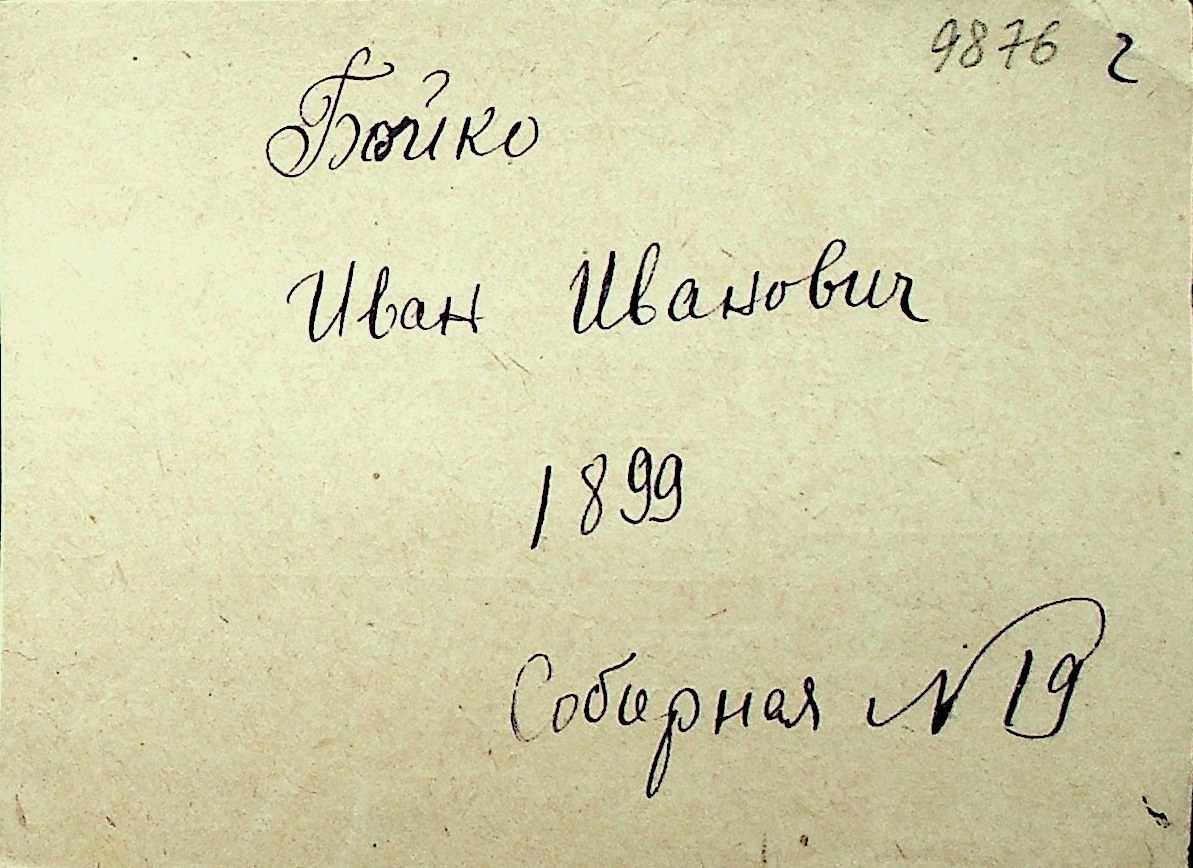 9876 г
Бойко
Иван Иванович
1899
Собирная № 19